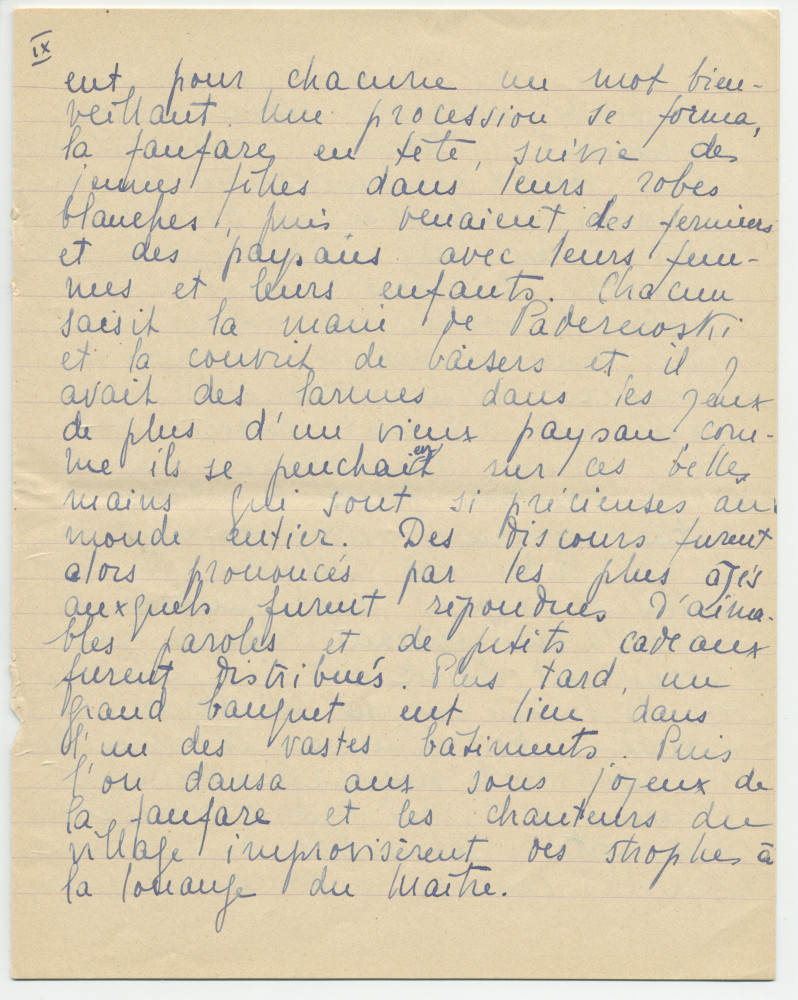 IX
eut pour chacune un mot bien-
veillant. Une procession se forma,
la fanfare en tête, suivie des
jeunes filles dans leurs robes
blanches, puis venaient des fermiers
et des paysans avec leurs fem-
mes et leurs enfants. Chacun
saisit la main de Paderewski
et la couvrit de baisers et il y
avait des larmes dans les yeux
de plus d'un vieux paysan, com-
me ils se penchaient sur ces belles
mains qui sont si précieuses au
monde entier. Des discours furent
alors prononcés par les plus âgés
auxquels furent répondues d'aima-
bles paroles et de petits cadeaux
furent distribués. Plus tard, un
grand banquet eut lieu dans
l'un des vastes bâtiments. Puis
l'on dansa aux sons joyeux de
la fanfare et les chanteurs du
village improvisèrent des strophes à
la louange du Maître.